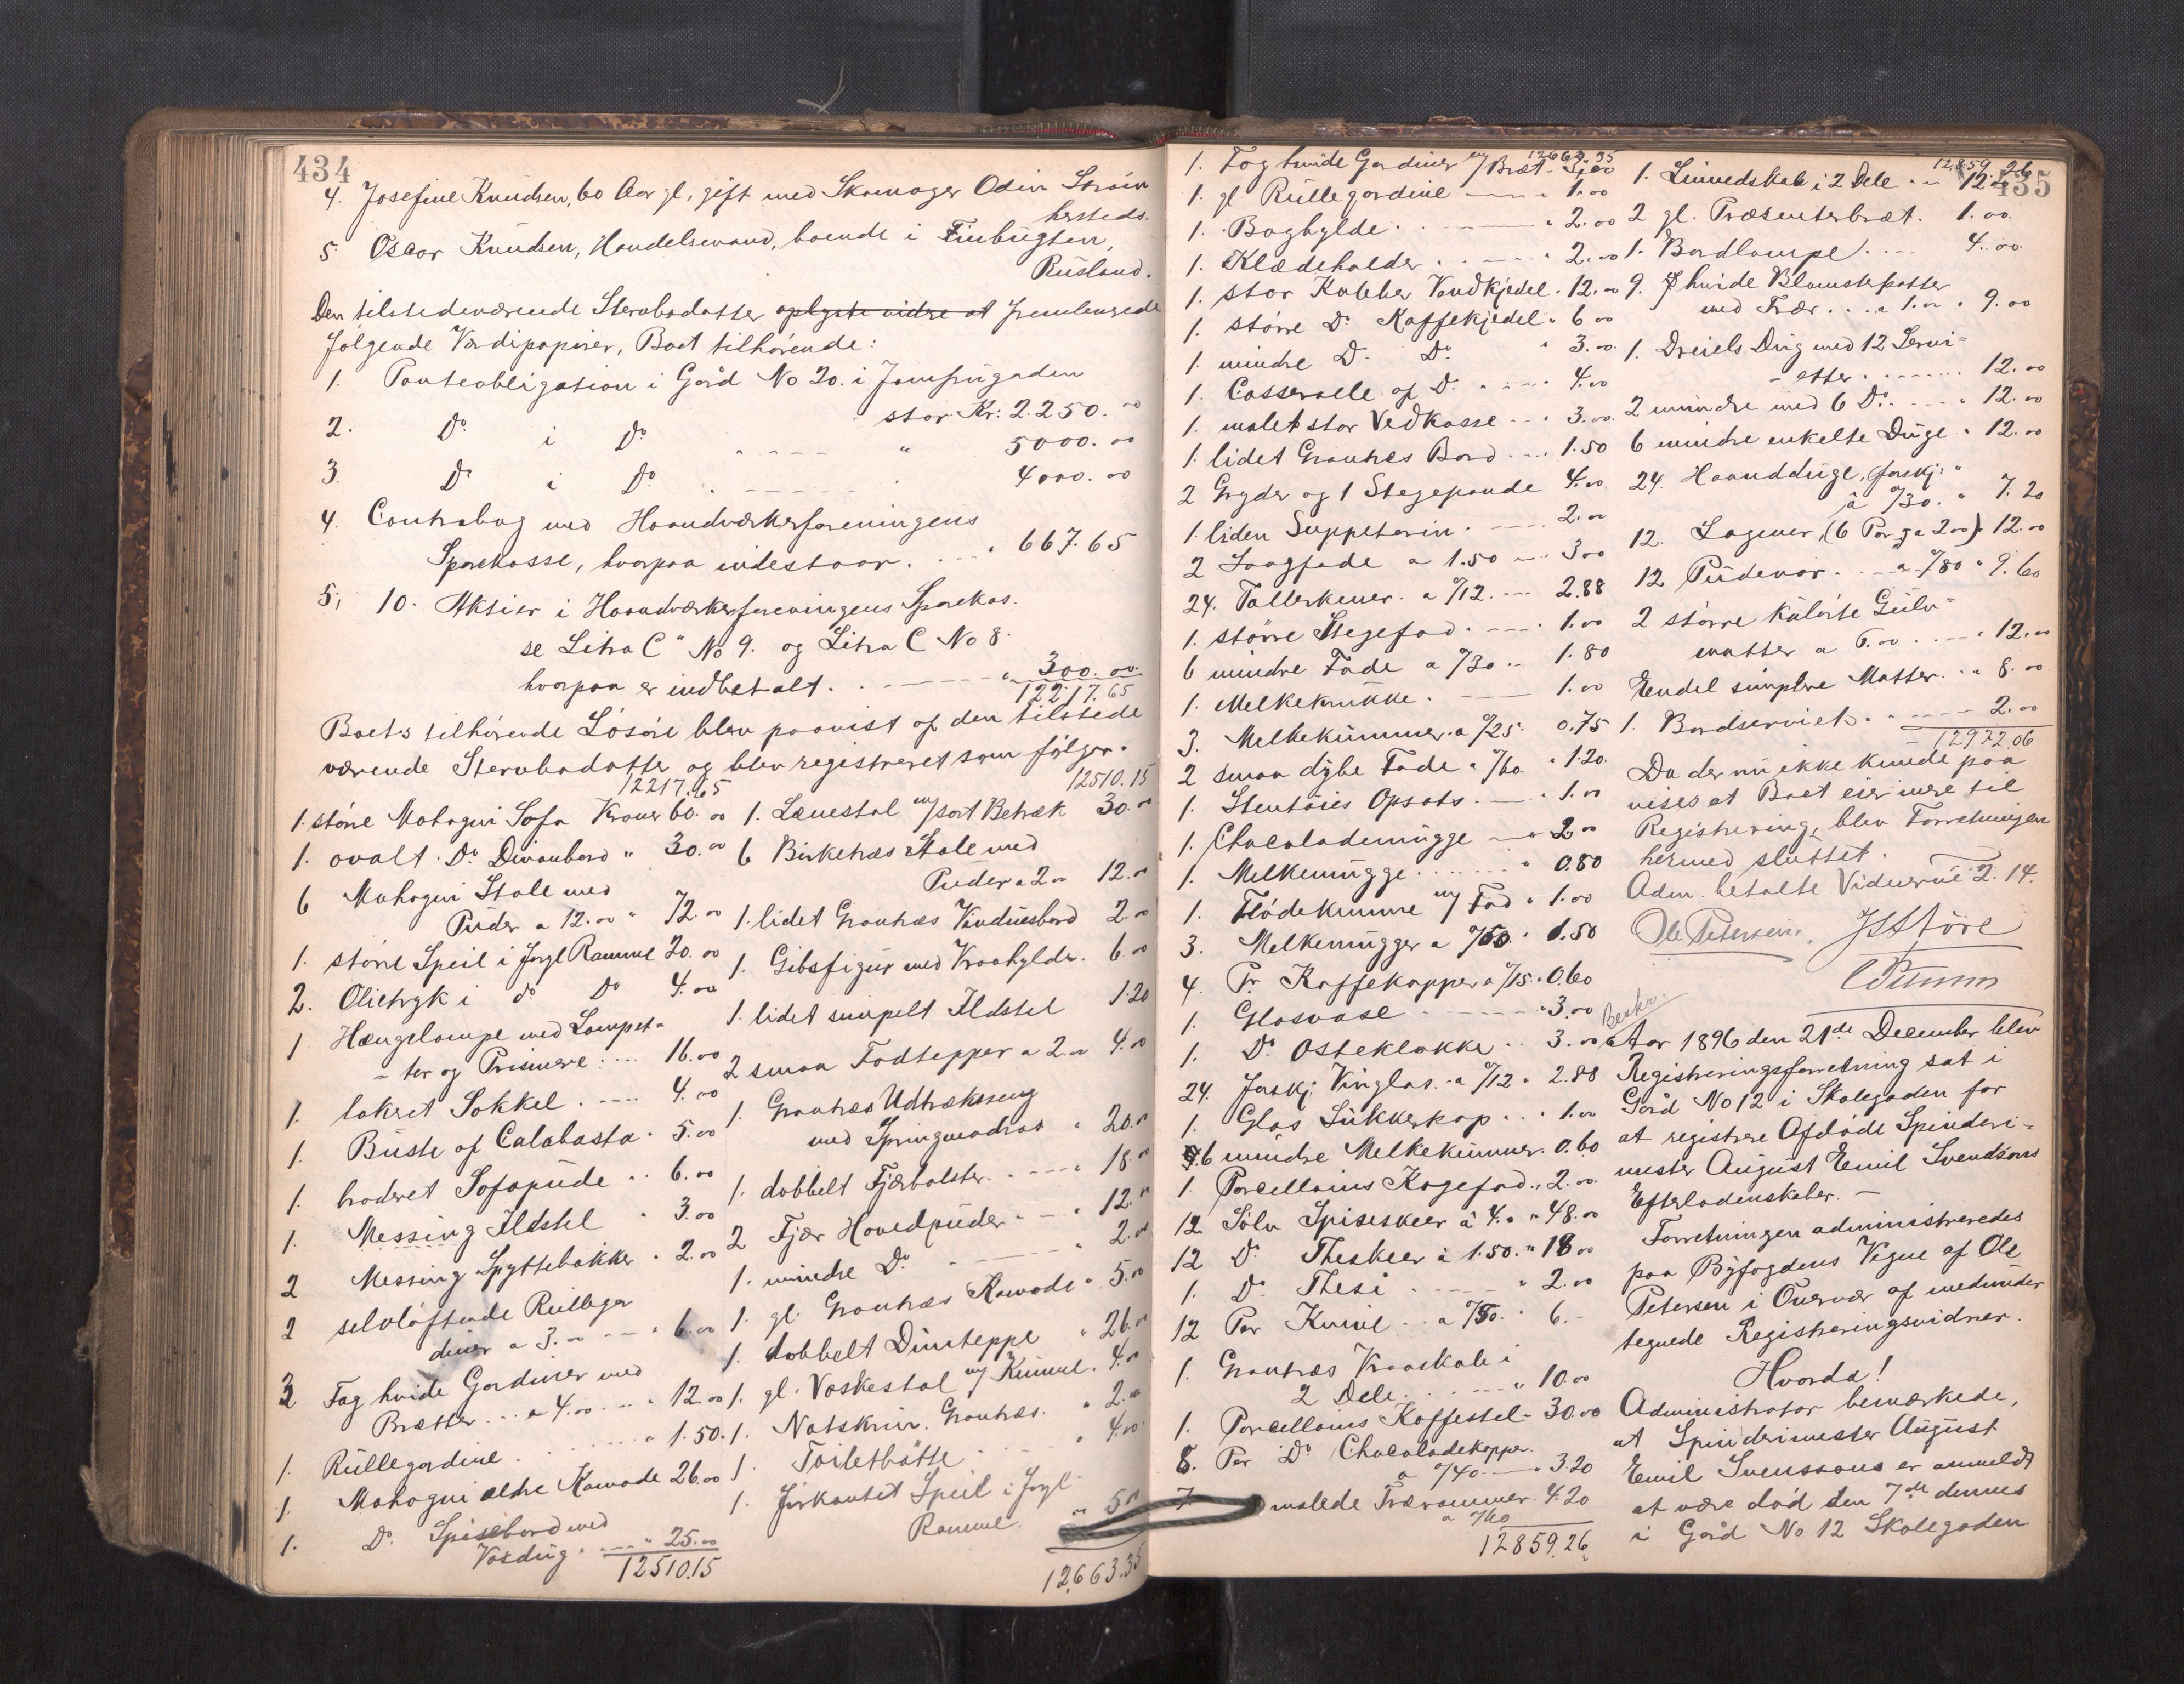 434
4. Josefine Knudsen, 60 Aar gl, gift med Skomager Odin Ström
hersteds.
5 Oscar Knudsen, Handelsmand, boende i Finbugten,
Rusland.
Den tilstedeværende Stervbodatter oplyste vidre at fremlangede
følgende Værdipapirer, Boet tilhørende:
1. Panteobligation i Gård No 20. i Jomfrugaden
stor Kr: 2.250.00
2. Do i Do " 5000.00
3. Do i Do 4000.00
4. Contrabog med Haandværkerforeningens
Sparekasse, hvorpaa indestaar. " 667.65
5, 10. Aktier i Haandværkerforeningens Sparekas-
se Litra C " No 9. og Litra C No 8.
hvorpaa er indbetalt. " 300.00
12217.65
Boets tilhørende Løsøre blev paavist af den tilstede
værende Stervbodatter og blev registreret som følger.
12217.65
1. större Mahogni Sofa Kroner 60.00
1. ovalt Do Divanbord " 30.00
6 Mahogni Stole med
Puder a 12.00 " 72.00
1. större Speil i forgl Ramme 20.00
2. Olietryk i do Do 4.00
1 Hængelampe med Lampet-
-ter og Prismere 16.00
1. lakeret Sokkel 4.00
1. Büste af Calabasta 5.00
1. broderet Sofapude 6.00
1. Messing Ildstel " 3.00
2 Messing Spyttebakker " 2.00
2 selvløftende Rullegar
diner a 3.00 " 6.00
3 Fag hvide Gardiner med
Brætter a 4.00 " 12.00
1 Rullegardine " 1.50
1. Mahogni ældre Komode 26.00
1. Do Spisebord med
Voxdug " 25.00
12510.15
12510.15
1. Lænestol m/sort Betræk 30.00
6 Birketræs Stole med
Puder a 2.00 12.00
1. lidet Grantræs Vinduesbord 2.00
1. Gibsfigur med Kraahylde 6.00
1. lidet simpelt Ildstel 1.20
2 smaa Fodtepper a 2.00 4.00
1. Grantræs Udtræksseng
med Springmadras " 20.00
1. dobbelt Fjærbolster " 18.00
2 Fjær Hovedpuder " 12.00
1. mindre Do " 2.00
1. gl. Grantræs Komode " 5.00
1. dobbelt Duntæppe " 26.00
1. gl. Vaskestol m/ Kumme 4.00
1. Natskrin Grantræs " 2.00
1. Toiletbøtte " 4.00
1. firkantet Speil i forgl
Ramme " 5.00
12,663.35
12663.35
1. Fag hvide Gardiner m/Bræt 3.00
1. gl Rullegardine " 1.00
1. Boghylde " 2.00
1. Klædeholder " 2.00
1. stor Kobber Vandkjedel 12.00
1. större Do Kaffekjedel " 6.00
1. mindre Do Do " 3.00
1. Casserolle af Do 4.00
1. malet stor Vedkasse " 3.00
1. lidet Grantræs Bord 1.50
2 Gryder og 1 Stegepande 4.00
1. liden Suppeterin 2.00
2 Laagfade a 1.50 3.00
24. Tallerkener a %12 2.88
1. större Stegefad 1.00
6 mindre Fade a %30 1.80
1. Melkekrukke 1.00
3. Melkekummer a %25 0.75
2 smaa dybe Fade a %60 1.20
1. Stentøies Opsats " 1.00
1. Chocolademugge " 2.00
1. Melkemugge " 0.80
1. Flødekumme m/ Fad " 1.00
3. Melkemugger a %50 1.50
4. Pr Kaffekopper a %15 0.60
1. Glasvase " 3.00
1. Do Osteklokke 3.00
24. forskj. Vinglas a %12 " 2.88
1. Glas Sukkerkop " 1.00
6 mindre Melkekummer 0.60
1. Porcellains Kagefad " 2.00
12 Sölv Spiseskeer â 4.00 " 48.00
12 Do Theskeer a 1.50 " 18.00
1. Do Thesi " 2.00
12 Par Knive a %50 " 6.-
1. Grantræs Kraaskab i
2 Dele " 10.00
1. Porcellains Kaffestel " 30.00
8. Par Do Chocoladekopper
a %40 " 3.20
7. malede Trærammer 4.20
a %60
12859.26
435
12,859.26
1. Linnedskab i 2 Dele " 12.00
2 gl. Præsenterbræt 1.00
1. Bordlampe 4.00
9. hvide Blomsterpotter
med Trær a 1.00 " 9.00
1. Dreiels Dug med 12 Servi-
-etter 12.00
2 mindre med 6 Do " 12.00
6 mindre enkelte Duge " 12.00
24. Haandduge, forskj. "
â %30 " 7.20
12. Lagener, (6 Par a 2.00) 12.00
12 Pudevar a %80 " 9.60
2 større kulørte Gulv-
matter a 6.00 " 12.00
Endel simplere Matter " 8.00
1. Bordserviet 2.00
12972.06
Da der nu ikke kunde paa
vises at Boet eier mere til
Registrering, blev Forretningen
hermed sluttet.
Adm. betalte Vidnerne 2.14.
Ole Petersen.
Beskr.
Aar 1896 den 21de December blev
Registreringsforretning sat i
Gård No 12 i Skolegaden for
at registrere Afdøde Spinderi-
mester August Emil Svendsons
Efterladenskaber. -
Forretningen administreredes
paa Byfogdens Vegne af Ole
Petersen i Overvær af medunder
tegnede Registreringsvidner.
Hvorda!
Administrator bemærkede,
at Spinderimester August
Emil Svenssons er anmeldt
at være död den 7de dennes
i Gård No 12 Skolegaden